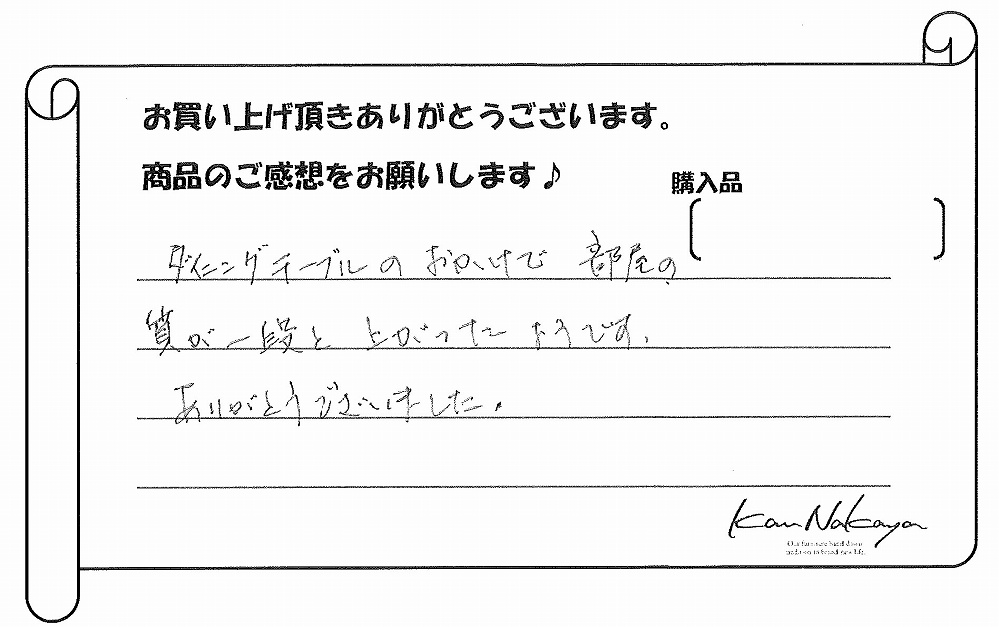 お買い上げ頂きありがとうございます。
商品のご感想をお願いします♪
購入品
ダイニングテーブルのおかげで部屋の
質が一段と上がったようです。
ありがとうございました。
Kan Nakaya
Our furniture hand down